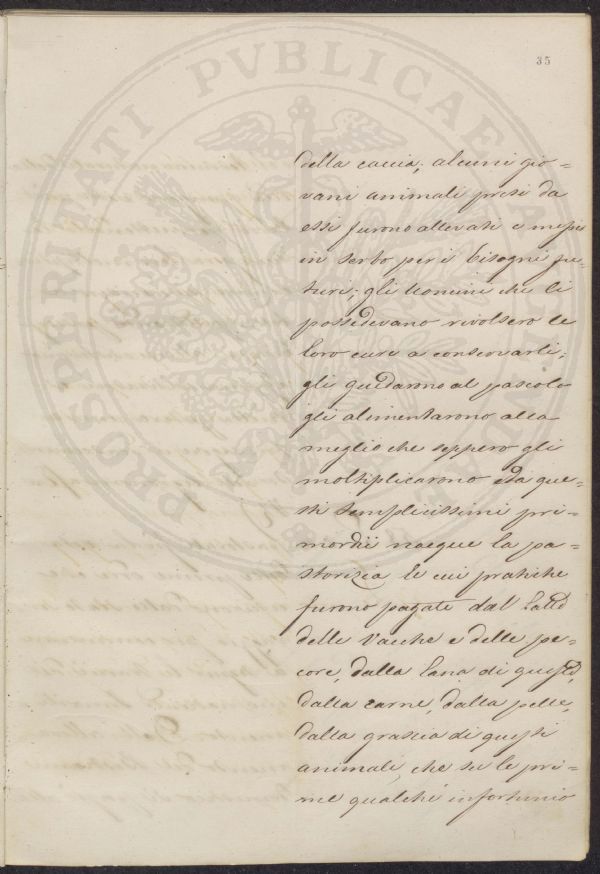 35
PROSPERITATI PVBLICAE
della caccia, alcuni gio=
vani animali presi da
essi furono allevati e messi
in serbo per i bisogni fu=
turi; gli Uomini che li
possedevano rivolsero le
loro cure a conservarli;
gli guidarono al pascolo
gli alimentarono alla
meglio che seppero gli
moltiplicarono e da que=
sti semplicissimi pri=
mordii nacque la pa=
storizia le cui pratiche
furono pagate dal latte
delle vacche e delle pe=
core, dalla lana di queste,
dalla carne, dalla pelle,
dalla grascia di questi
animali, che se le pri=
me qualche infortunio